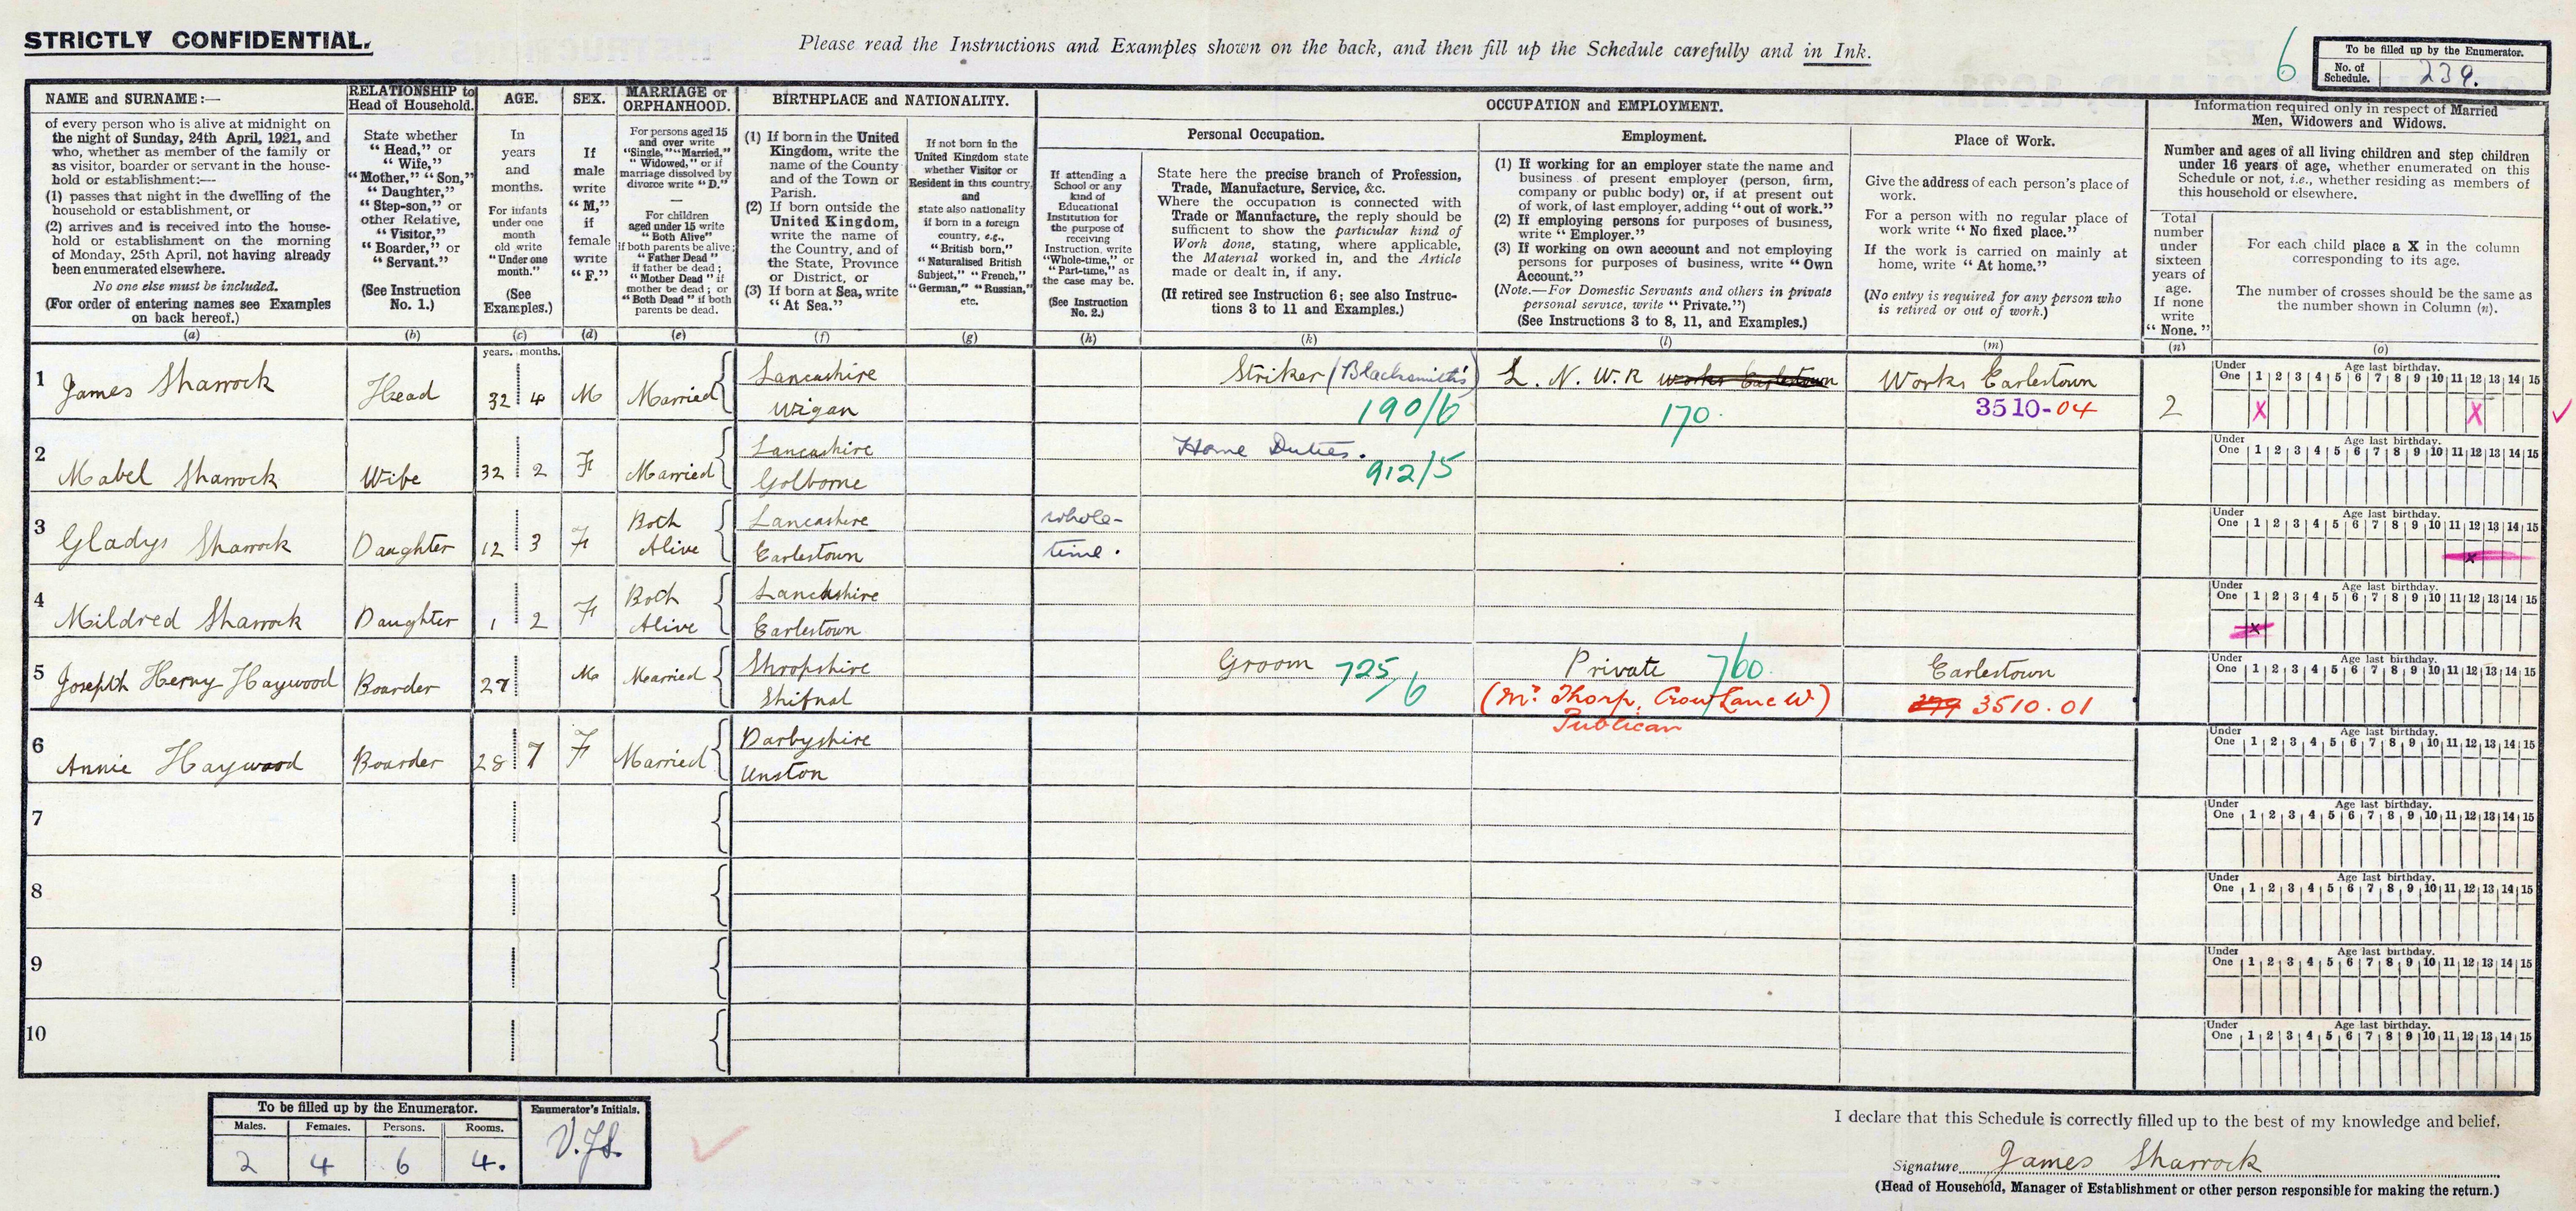 STRICTLY CONFIDENTIAL.
Please read the Instructions and Examples shown on the back, and then fill up the Schedule carefully and in Ink.
6
To be filled up by the Enumerator.
No. of Schedule. 239.
NAME and SURNAME:—
of every person who is alive at midnight on
the night of Sunday, 24th April, 1921, and
who, whether as member of the family or
as visitor, boarder or servant in the house-
hold or establishment:—
(1) passes that night in the dwelling of the
household or establishment, or
(2) arrives and is received into the house-
hold or establishment on the morning
of Monday, 25th April, not having already
been enumerated elsewhere.
No one else must be included.
(For order of entering names see Examples
on back hereof.)
(a)
RELATIONSHIP to
Head of Household.
State whether
“Head,” or
“Wife,”
“Mother,” “Son,”
“Daughter,”
“Step-son,” or
other Relative,
“Visitor,”
“Boarder,” or
“Servant.”
(See Instruction
No. 1.)
(b)
AGE.
In
years
and
months.
For infants
under one
month
old write
“Under one
month.”
(See
Examples.)
(c)
SEX.
If
male
write
“M,”
if
female
write
“F.”
(d)
MARRIAGE or
ORPHANHOOD.
For persons aged 15
and over write
“Single,” “Married,”
“Widowed,” or if
marriage dissolved by
divorce write “D.”
—
For children
aged under 15 write
“Both Alive”
if both parents be alive;
“Father Dead”
if father be dead;
“Mother Dead” if
mother be dead; or
“Both Dead” if both
parents be dead.
(e)
BIRTHPLACE and NATIONALITY.
(1) If born in the United
Kingdom, write the
name of the County
and of the Town or
Parish.
(2) If born outside the
United Kingdom,
write the name of
the Country, and of
the State, Province
or District, or
(3) If born at Sea, write
“At Sea.”
(f)
If not born in the
United Kingdom state
whether Visitor or
Resident in this country,
and
state also nationality
if born in a foreign
country, e.g.,
“British born,”
“Naturalised British
Subject,” “French,”
“German,” “Russian,”
etc.
(g)
OCCUPATION and EMPLOYMENT.
If attending a
School or any
kind of
Educational
Institution for
the purpose of
receiving
Instruction, write
“Whole-time,” or
“Part-time,” as
the case may be.
(See Instruction
No. 2.)
(h)
Personal Occupation.
State here the precise branch of Profession,
Trade, Manufacture, Service, &c.
Where the occupation is connected with
Trade or Manufacture, the reply should be
sufficient to show the particular kind of
Work done, stating, where applicable,
the Material worked in, and the Article
made or dealt in, if any.
(If retired see Instruction 6; see also Instruc-
tions 3 to 11 and Examples.)
(k)
Employment.
(1) If working for an employer state the name and
business of present employer (person, firm,
company or public body) or, if at present out
of work, of last employer, adding “out of work.”
(2) If employing persons for purposes of business,
write “Employer.”
(3) If working on own account and not employing
persons for purposes of business, write “Own
Account.”
(Note.—For Domestic Servants and others in private
personal service, write “Private.”)
(See Instructions 3 to 8, 11, and Examples.)
(l)
Place of Work.
Give the address of each person's place of
work.
For a person with no regular place of
work write “No fixed place.”
If the work is carried on mainly at
home, write “At home.”
(No entry is required for any person who
is retired or out of work.)
(m)
Information required only in respect of Married
Men, Widowers and Widows.
Number and ages of all living children and step children
under 16 years of age, whether enumerated on this
Schedule or not, i.e., whether residing as members of
this household or elsewhere.
Total
number
under
sixteen
years of
age.
If none
write
“None.”
(n)
For each child place a X in the column
corresponding to its age.
The number of crosses should be the same as
the number shown in Column (n).
(o)
years. months.
1 James Sharrock Head 32 4 M Married Lancashire Wigan Striker (Blacksmith's) L. N. W. R works Earlestown Works Earlestown 2 X X ✓
190/6 170. 3510-04
Under One 1 2 3 4 5 6 7 8 9 10 11 12 13 14 15
Age last birthday.
2 Mabel Sharrock Wife 32 2 F Married Lancashire Golborne Home Duties.
912/5
Under One 1 2 3 4 5 6 7 8 9 10 11 12 13 14 15
Age last birthday.
3 Gladys Sharrock Daughter 12 3 F Both Alive Lancashire Earlestown whole-time. x
Under One 1 2 3 4 5 6 7 8 9 10 11 12 13 14 15
Age last birthday.
4 Mildred Sharrock Daughter 1 2 F Both Alive Lancashire Earlestown x
Under One 1 2 3 4 5 6 7 8 9 10 11 12 13 14 15
Age last birthday.
5 Joseph Henry Haywood Boarder 27 M Married Shropshire Shifnal Groom 725/6 Private 760. Earlestown
(Mr Thorp, Crow Lane W) 3510.01
Publican
Under One 1 2 3 4 5 6 7 8 9 10 11 12 13 14 15
Age last birthday.
6 Annie Haywood Boarder 28 7 F Married Darbyshire Unston
Under One 1 2 3 4 5 6 7 8 9 10 11 12 13 14 15
Age last birthday.
7
Under One 1 2 3 4 5 6 7 8 9 10 11 12 13 14 15
Age last birthday.
8
Under One 1 2 3 4 5 6 7 8 9 10 11 12 13 14 15
Age last birthday.
9
Under One 1 2 3 4 5 6 7 8 9 10 11 12 13 14 15
Age last birthday.
10
Under One 1 2 3 4 5 6 7 8 9 10 11 12 13 14 15
Age last birthday.
To be filled up by the Enumerator.
Males. Females. Persons. Rooms.
2 4 6 4.
Enumerator's Initials.
I declare that this Schedule is correctly filled up to the best of my knowledge and belief.
Signature James Sharrock
(Head of Household, Manager of Establishment or other person responsible for making the return.)